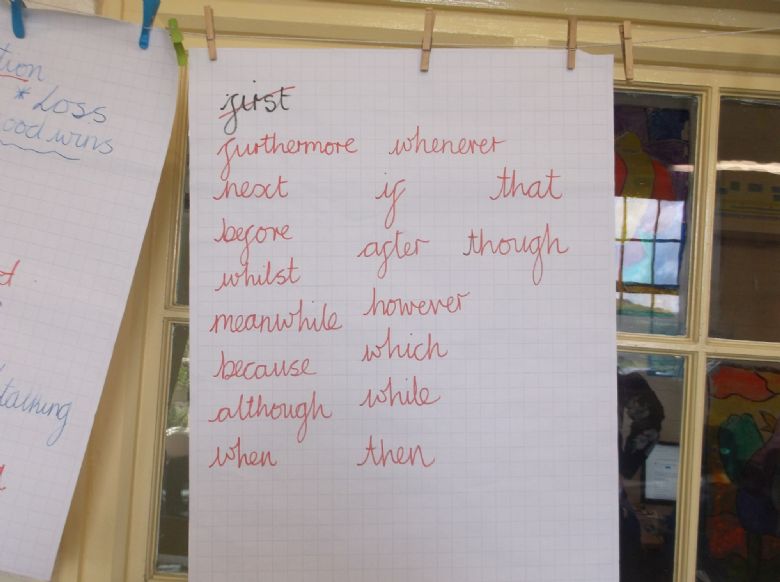 * Loss
wins
first
furthermore whenever
next if that
before
after though
whilst
meanwhile however
because which
although while
when then